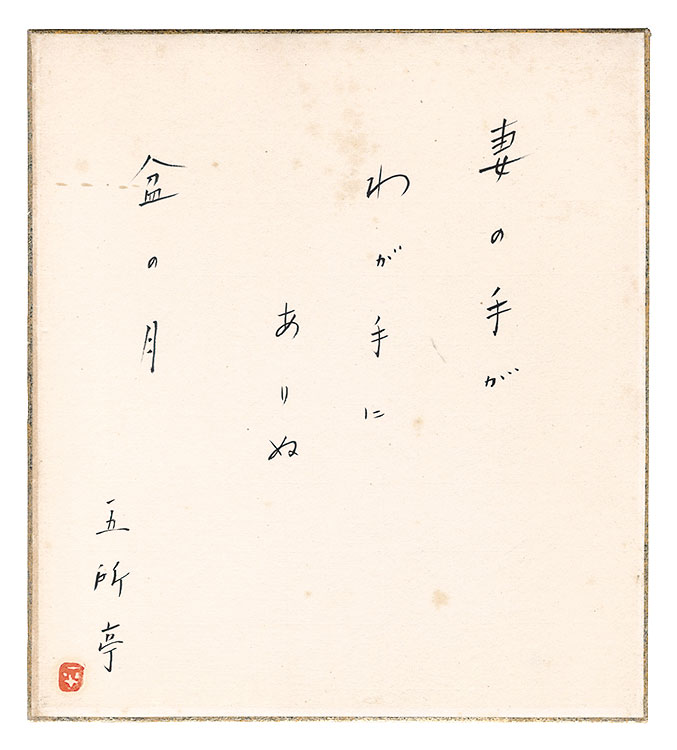 妻の手が
わが手に
ありぬ
盆の月
五所亭